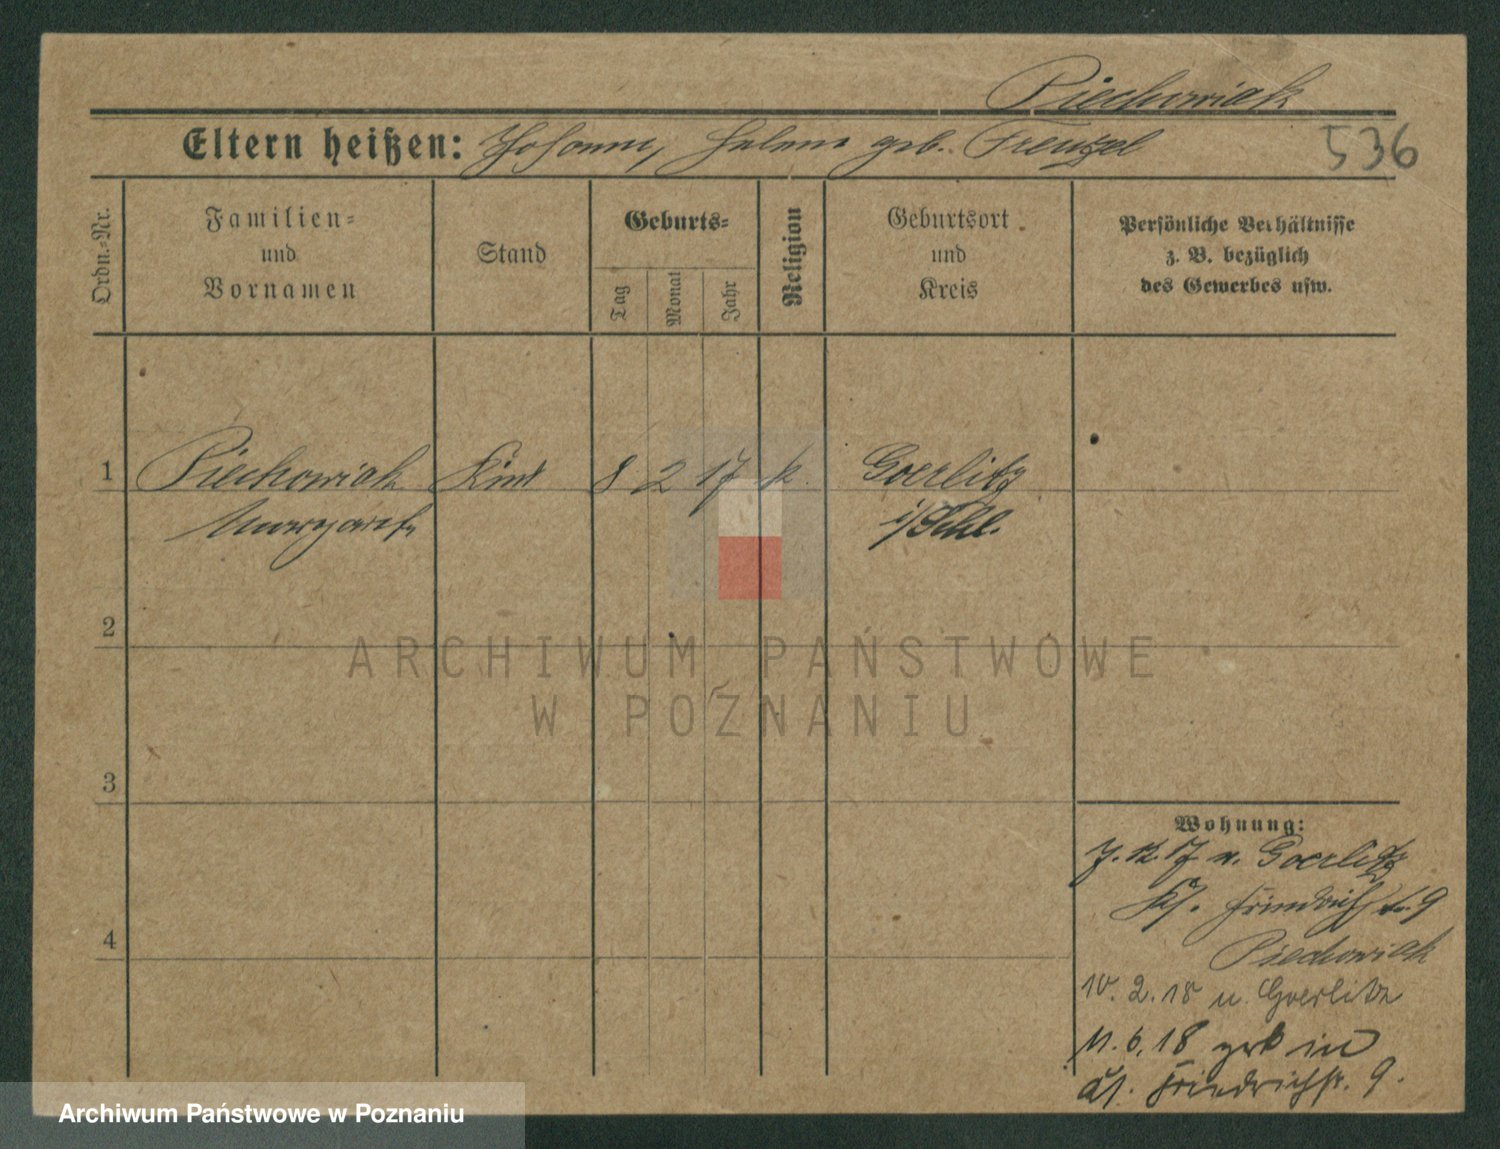 Piechowiak
Eltern heißen: Johann, Helene geb. Frenzel
536
Ordn.-Nr.
Familien-
und
Vornamen
Stand
Geburts-
Tag
Monat
Jahr
Religion
Geburtsort
und
Kreis
Persönliche Verhältnisse
z. B. bezüglich
des Gewerbes usw.
1 Piechowiak Kind 8 2 17 k. Goerlitz
Margarete i/Schl.
2
ARCHIWUM PAŃSTWOWE
W POZNANIU
3
4
Wohnung:
17 v. Goerlitz
Friedrichstr. 9
Piechowiak
10. 2. 18 n. Goerlitz
11. 6. 18 zrk in
Friedrichstr. 9.
Archiwum Państwowe w Poznaniu